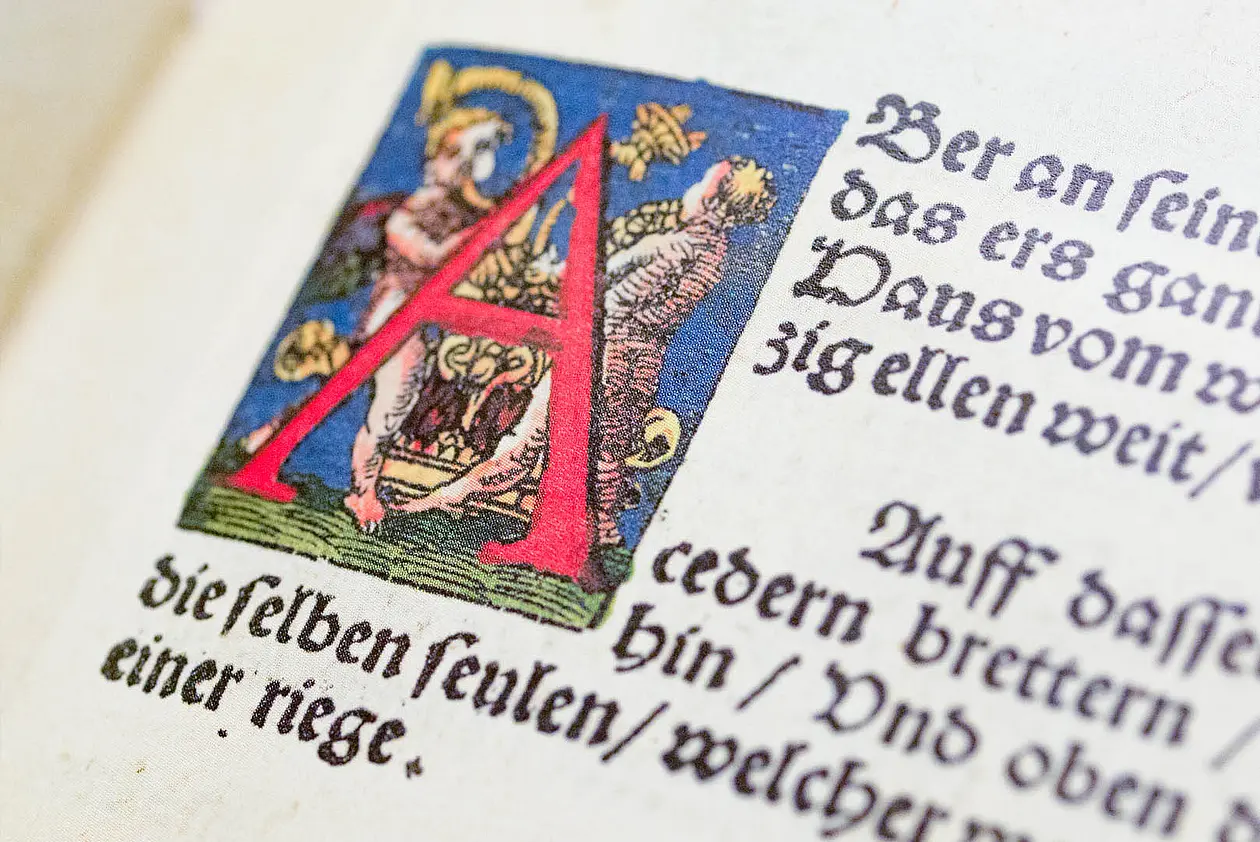 ABer an sein
das ers gan
Haus vom w
zig ellen weit /
Auff dasse
cedern brettern /
hin / Vnd oben d
die selben seulen / welcher w
einer riege.